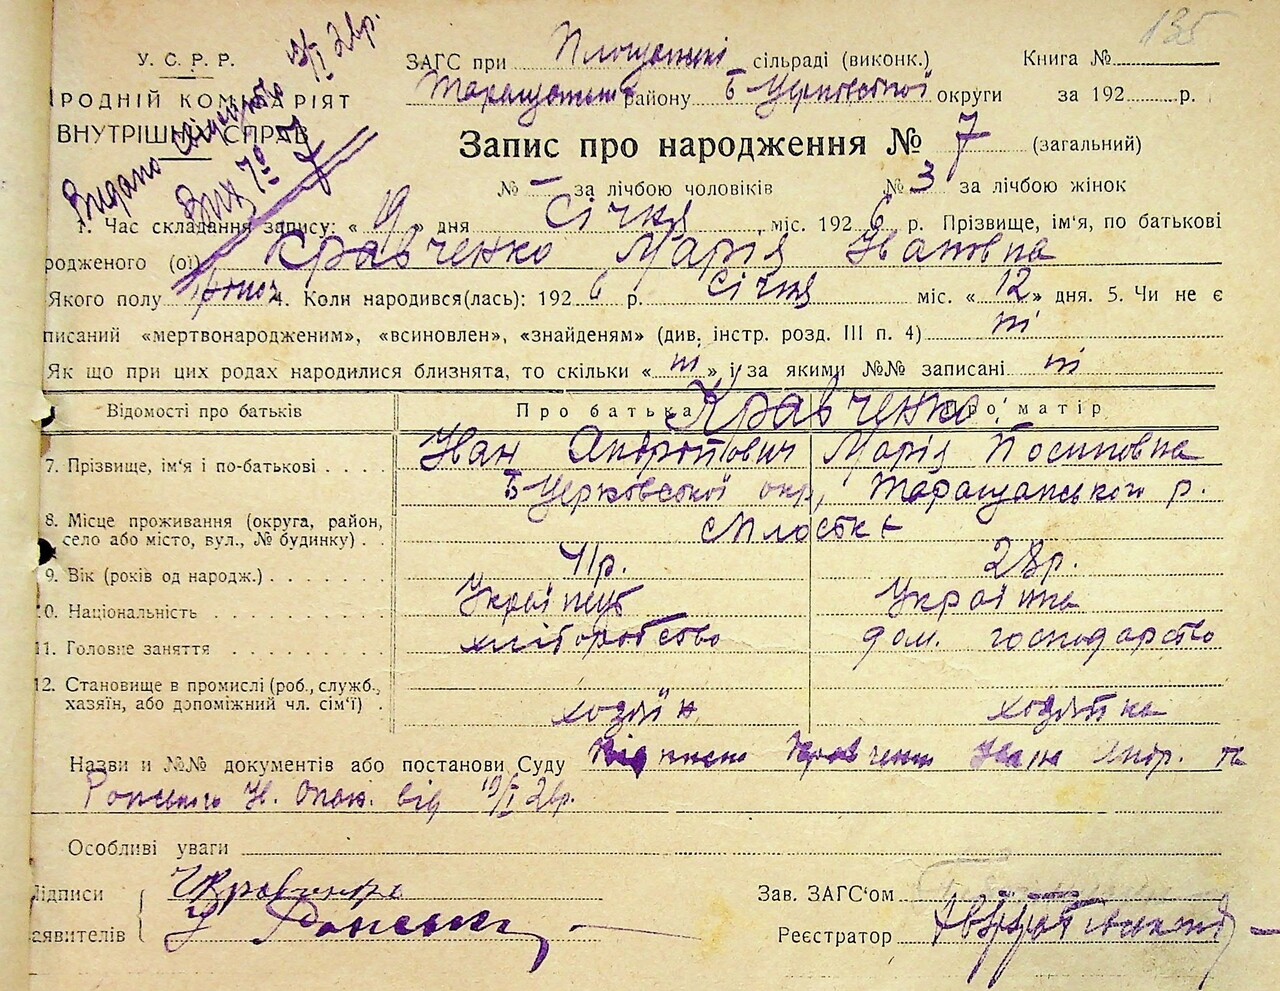 135
У. С. Р. Р.
РОДНІЙ КОМІСАРІЯТ
ВНУТРІШНІХ СПРАВ
Видано 19/I 26р.
Вих 7
ЗАГС при сільраді (виконк.) Книга №
району Б Церковської округи за 192 р.
Запис про народження № 7 (загальний)
№ – за лічбою чоловіків № 3 за лічбою жінок
1. Час складання запису: « 19 » дня Січня міс. 1926 р. Прізвище, ім'я, по батькові
родженого (ої) Кравченко Марія Івановна
Якого полу жіноч. 4. Коли народився(лась): 1926 р. Січня міс. « 12 » дня. 5. Чи не є
писаний «мертвонародженим», «всиновлен», «знайденям» (див. інстр. розд. III п. 4) ні
Як що при цих родах народилися близнята, то скільки « ні » і за якими №№ записані ні
Відомості про батьків Про батька Про матір
Кравченко
7. Прізвище, ім'я і по-батькові . . . . Іван Марія Йосиповна
8. Місце проживання (округа, район, село або місто, вул., № будинку) . Б Церковської окр, Таращанського р.
9. Вік (років од народж.) . . . . . . 41р. 28р.
0. Національність . . . . . . . . . Українець Українка
11. Головне заняття . . . . . . . . хліборобство дом. господарство
12. Становище в промислі (роб., служб., хазяїн, або допоміжний чл. сім'ї) . хозяїн хозяйка
Назви и №№ документів або постанови Суду Кравченко Іван та
від 19/I 26р.
Особливі уваги
Підписи
аявителів
Зав. ЗАГС'ом
Реєстратор